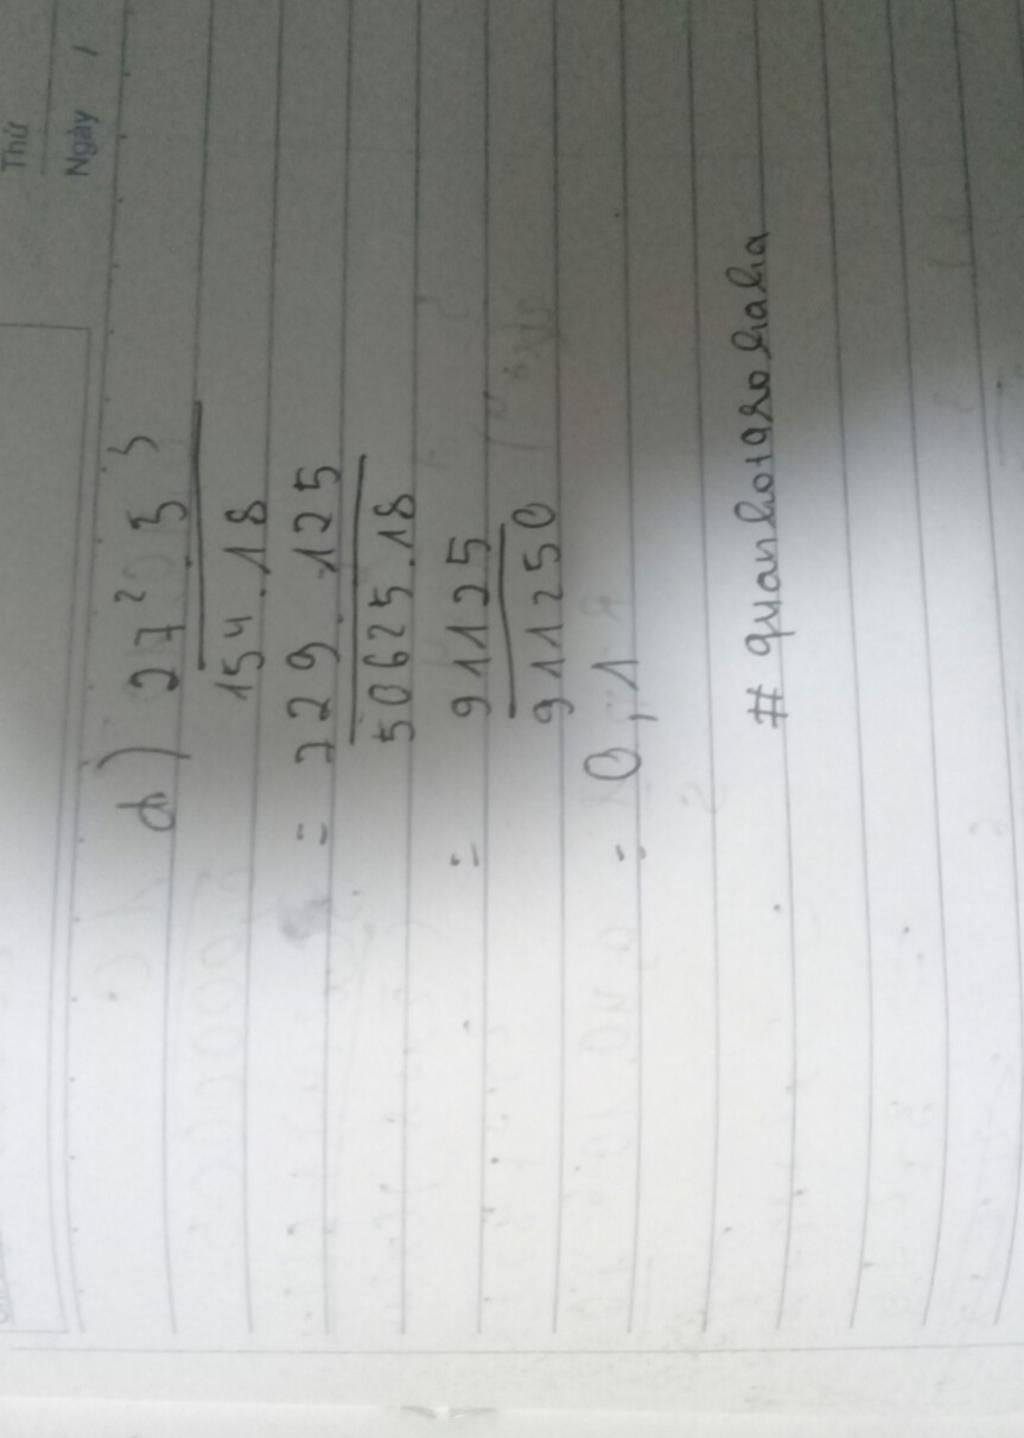 Thứ
Ngày /
d) 27² . 5³
15⁴ . 18
= 229 . 125
50625 . 18
= 91125
911250
= 0,1
# quanhotarohaha